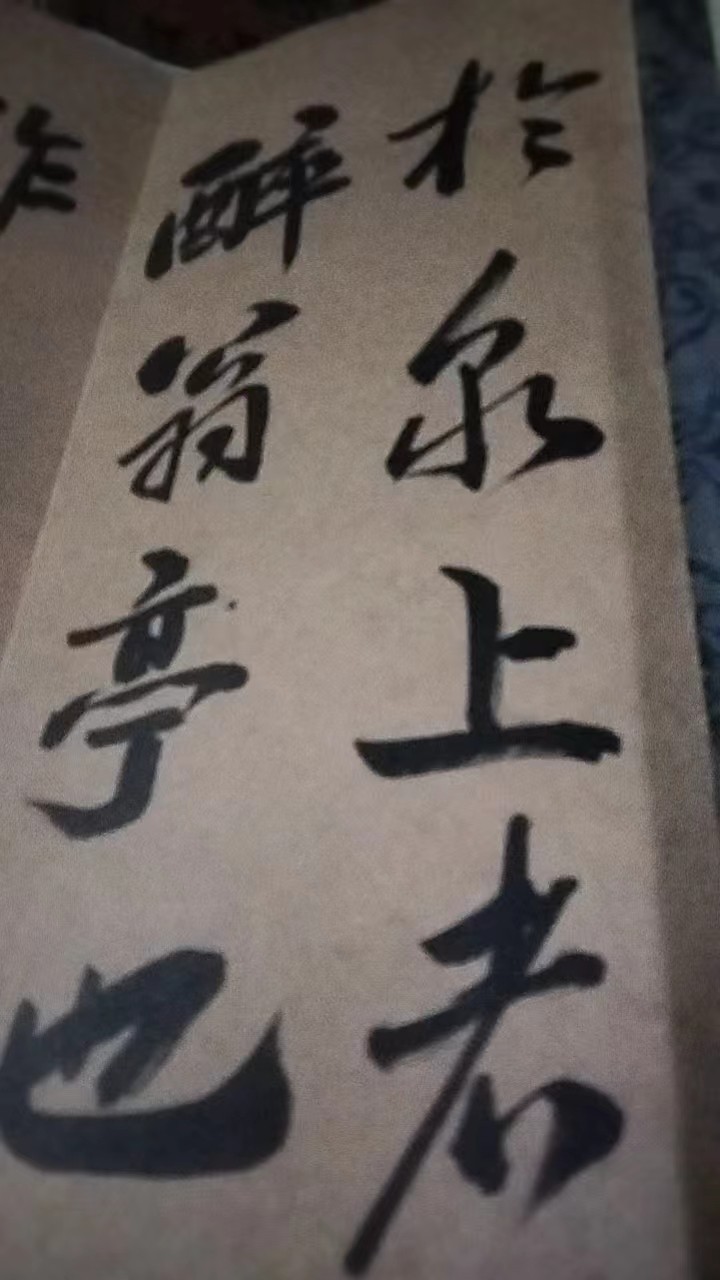 於泉上者
醉翁亭也